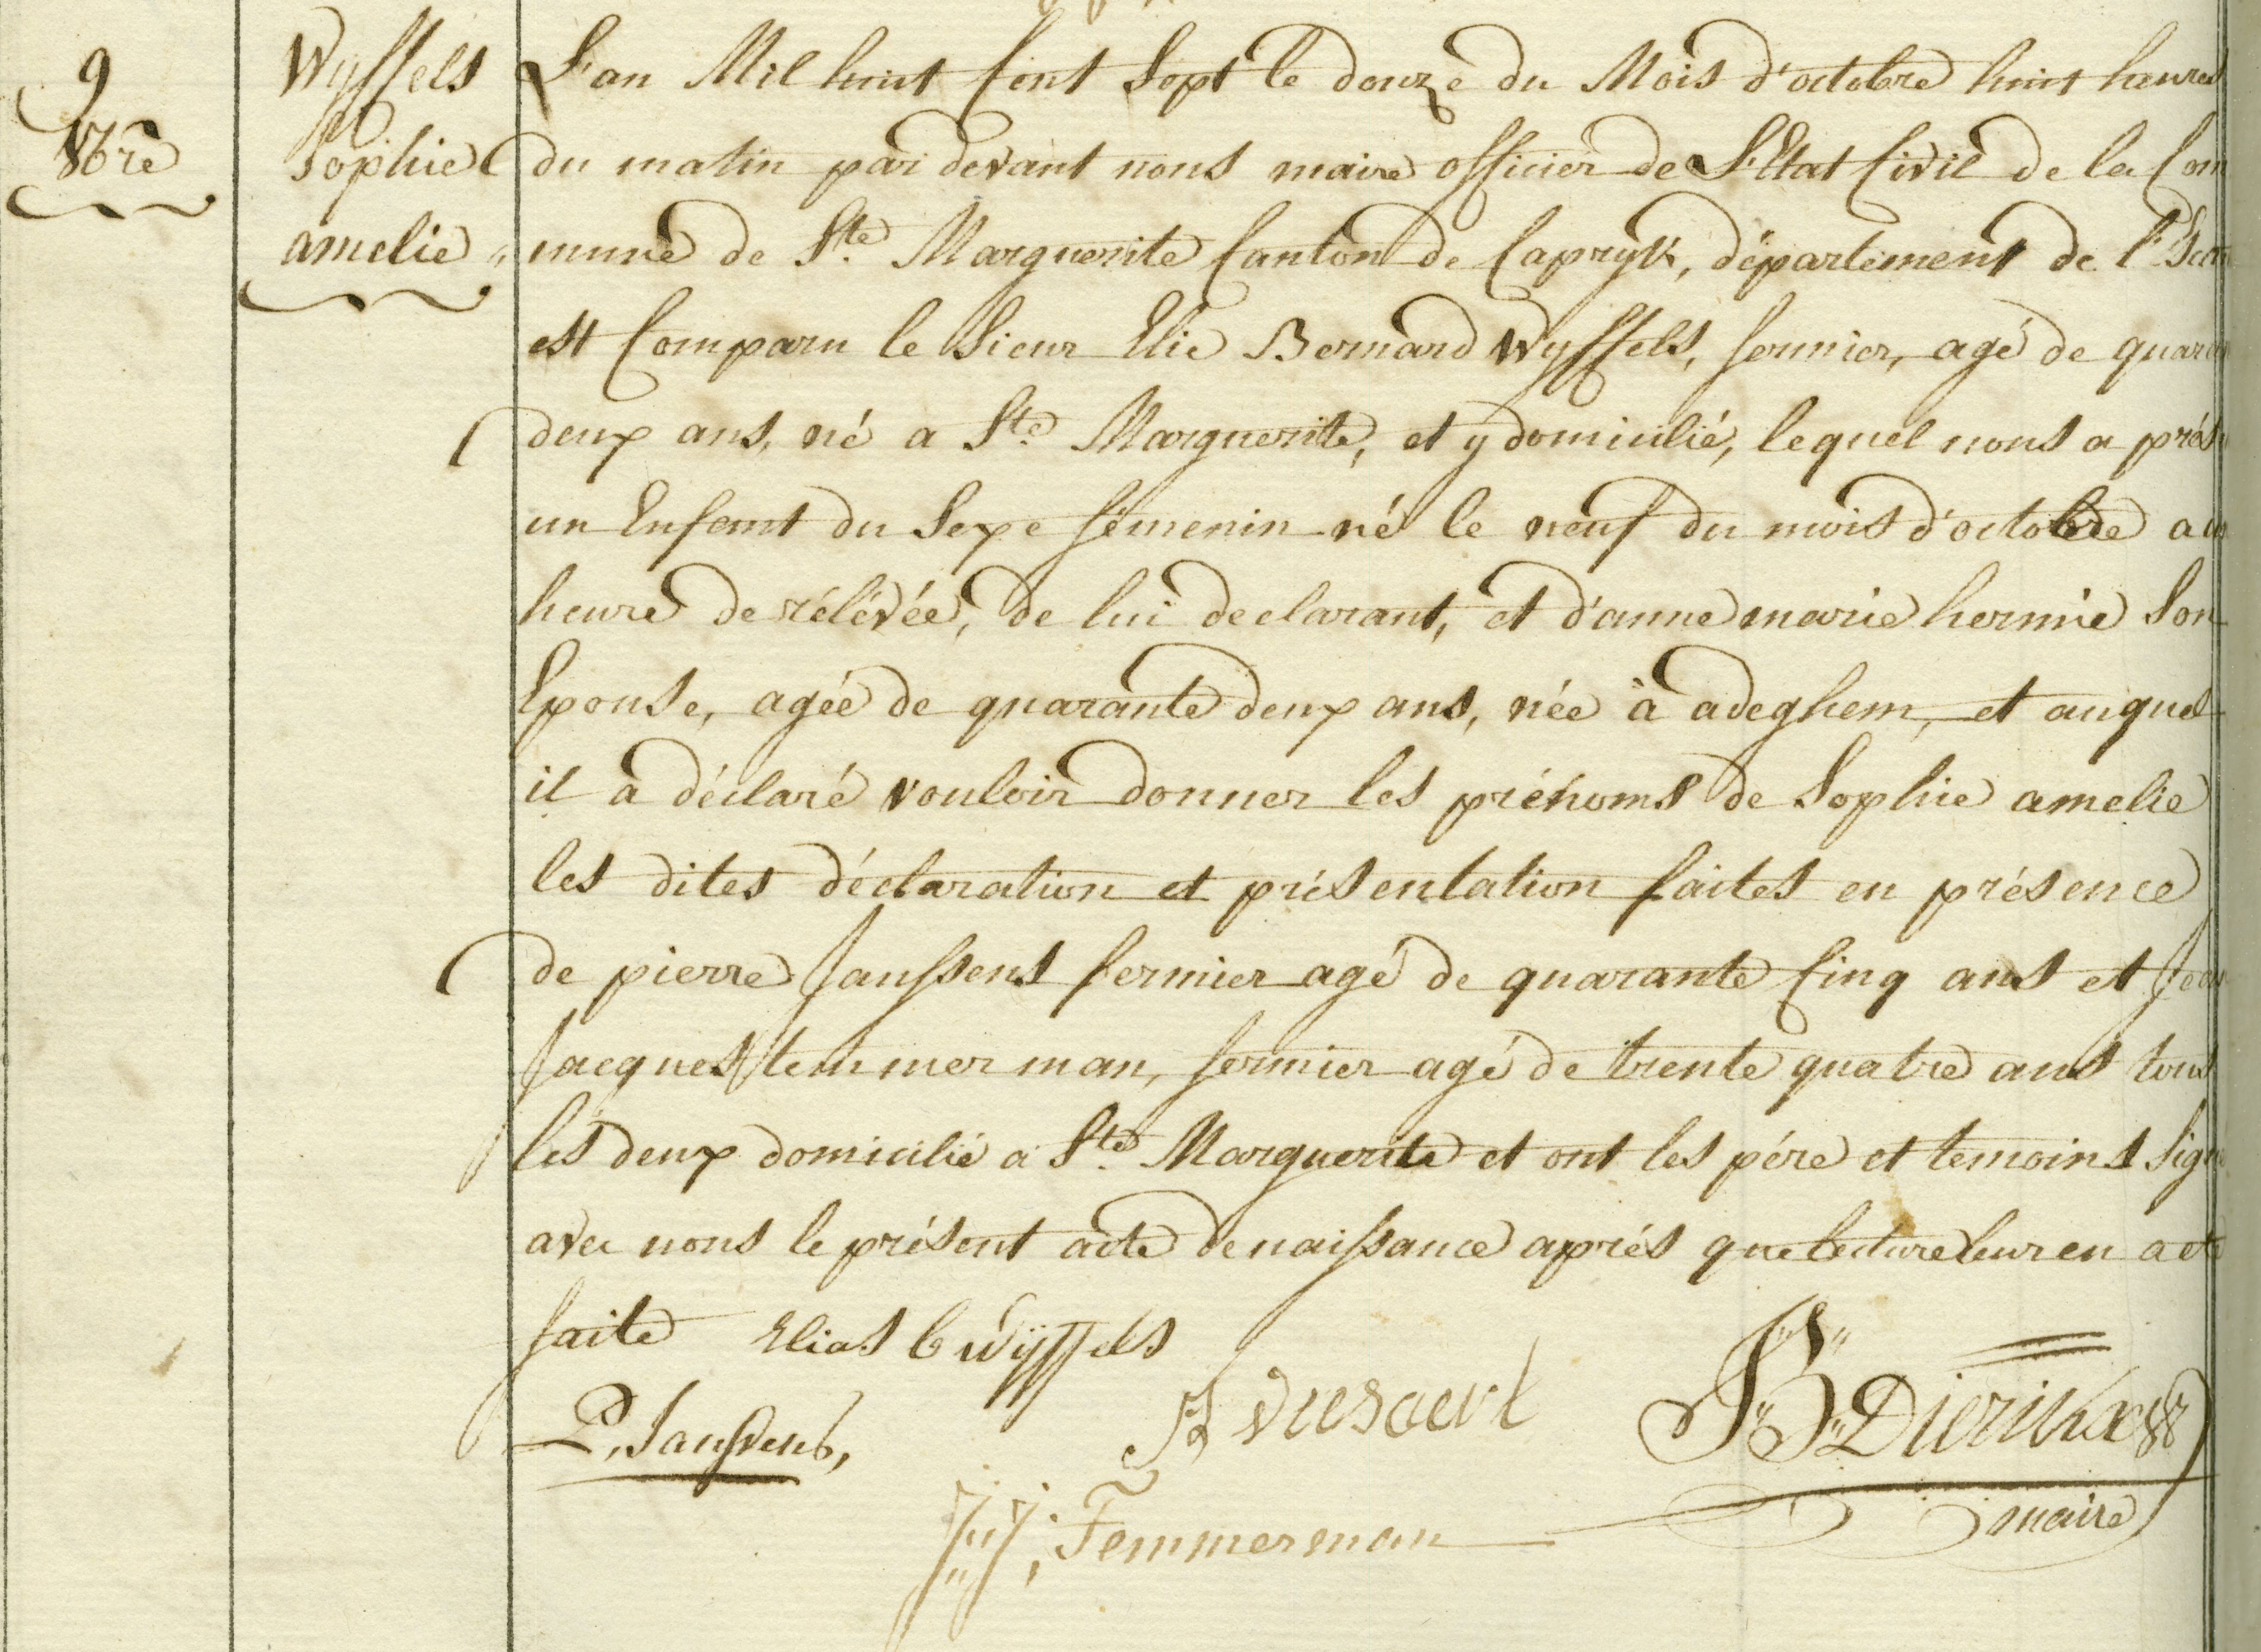 9
8bre
Wyffels
Sophie
amelie
L'an Mil huit Cent Sept le douze du Mois d'octobre huit heures
du matin par devant nous maire officier de L'Etat Civil de la Com
mune de Ste Marguerite Canton de Capryk, département de l'Esca
est Comparu le Sieur Elie Bernard Wyffels, fermier, agé de quaran
deux ans, né a Ste Marguerite, et y domicilié, lequel nous a prés
un Enfant du Sexe fémenin né le neuf du mois d'octobre a u
heure de rélévée, de lui declarant, et d'anne marie hermie Son
Epouse, agée de quarante deux ans, née à adeghem, et auquel
il a déclaré vouloir donner les prénoms de Sophie amelie
les dites déclaration et présentation faites en présence
de pierre Janssens fermier agé de quarante Cinq ans et Jean
Jacques temmerman, fermier agé de trente quatre ans tous
les deux domicilié a Ste Marguerite et ont les pére et temoins Sign
avec nous le présent acte de naissance aprés que lecture leur en a eté
faite Elias b wÿffels
P. Janssens,
JB Dierickx
J J Temmerman
maire